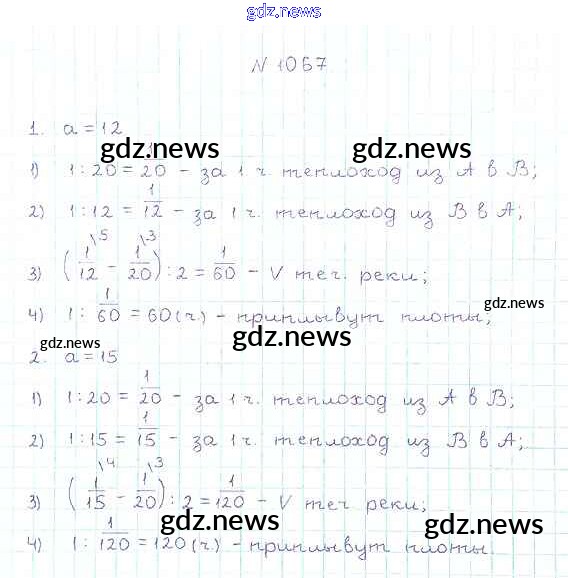 gdz.news
N 1067
1. a = 12
gdz.news gdz.news
1) 1 : 20 = 1/20 - за 1 ч. теплоход из А в В;
2) 1 : 12 = 1/12 - за 1 ч. теплоход из В в А;
3) (1/12 \5 - 1/20 \3) : 2 = 1/60 - V теч. реки;
gdz.news
4) 1 : 1/60 = 60 (ч.) - приплывут плоты;
gdz.news gdz.news
2. a = 15
1) 1 : 20 = 1/20 - за 1 ч. теплоход из А в В;
2) 1 : 15 = 1/15 - за 1 ч. теплоход из В в А;
3) (1/15 \4 - 1/20 \3) : 2 = 1/120 - V теч реки;
gdz.news gdz.news
4) 1 : 1/120 = 120 (ч.) - приплывут плоты.